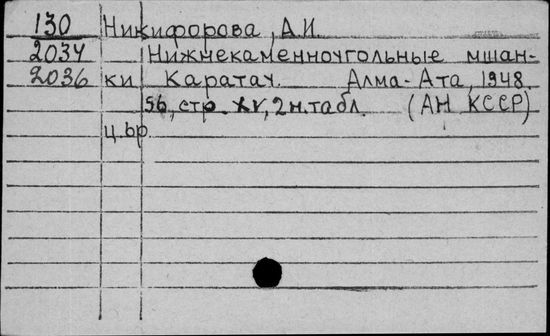 130 Никифорова, А.И.
2034 Нижнекаменноугольные мшан-
2036 ки Каратау. Алма-Ата, 1948.
56, стр. XV, 2 н. табл. (АН КССР)
ц. 6р